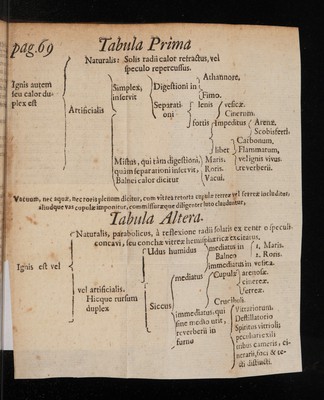 pag. 69
Tabula Prima
Naturalis: Solis radii calor refractus, vel
speculo repercussus.
Ignis autem
seu calor du-
plex est
Artificialis
Simplex,
inservit
Digestioni in
Athannore,
Fimo.
Separati-
oni
lenis
vesicæ.
Cinerum.
fortis
Impeditus
Arenæ.
Scobisferri.
liber
Carbonum,
Flammarum,
vel ignis vivus.
treverberii.
Mistus, qui tàm digestioni,
quàm separationi inservit,
Balnei calor dicitur
Maris.
Roris.
Vacui.
Vacuum, nec aquæ, nec roris plenum dicitur, cum vitrea retorta cupulæ terreæ vel ferreæ includitur,
aliudque vas cupulæ imponitur, commissuræque diligenter luto clauduntur,
Tabula Altera.
Naturalis, parabolicus, à reflexione radii solaris ex centro speculi
concavi, seu conchæ vitreæ hemisphæricæ excitatus.
Ignis est vel
vel artificialis.
Hicque rursum
duplex
Udus humidus
mediatus in
Balneo
1, Maris.
2. Roris.
immediatus in vesica.
Siccus
mediatus
Cupulæ
arenosæ.
cinereæ.
ferreæ.
Crucibuli.
immediatus, qui
sine medio urit,
reverberii in
furno
Vitrariorum.
Destillatorio
Spiritus vitrioli;
peculiari exili
tribus cameris; ci-
nerariis, foci & te-
cti distincti.